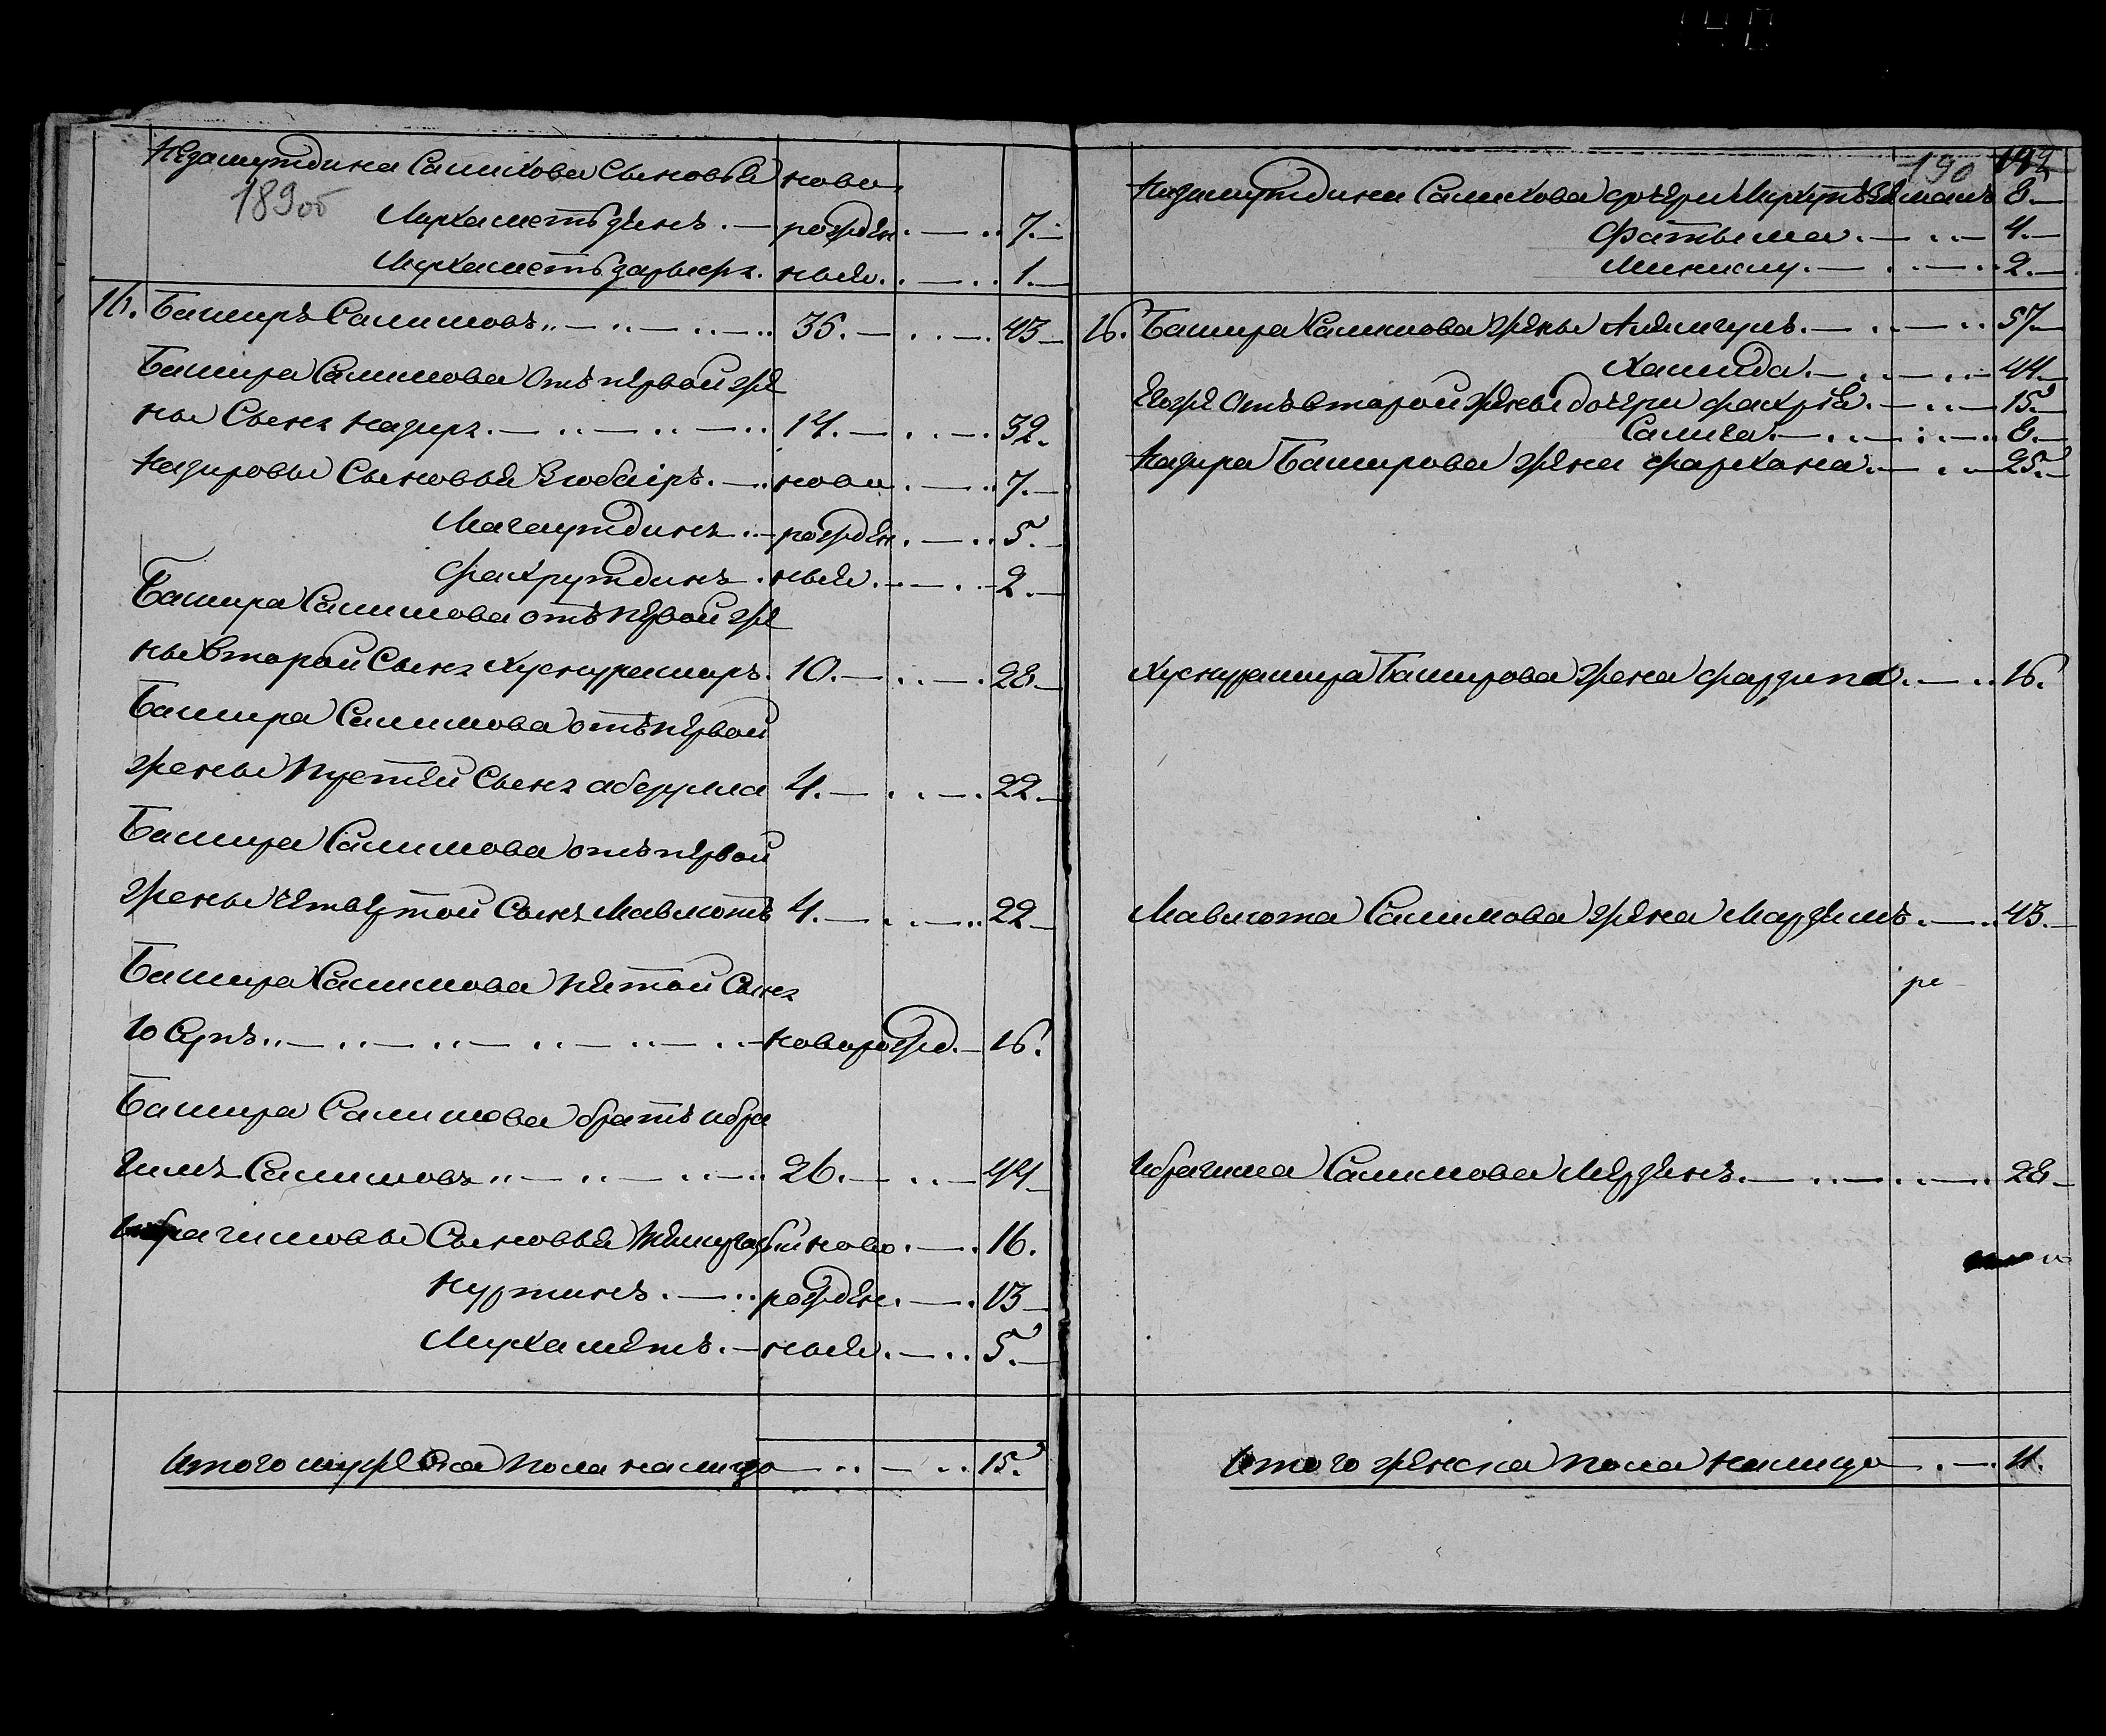 Низамутдина Салихова Сыновья ново
189 об
Мухаметьзянъ рожден 7.
ные 1.
16. Баширъ Салимовъ 35. 43
Башира Салимова отъ первой же
ны Сынъ Надиръ 14. 32.
Надировы Сыновья Зюбаиръ ново 7.
Магмутдинъ рожден 5.
Фахрутдинъ ные 2.
Башира Салимова отъ первой же
ны второй Сынъ Хуснураширъ 10. 28
Башира Салимова отъ первой
жены третей Сынъ 4. 22.
Башира Салимова отъ первой
жены четвертой Сынъ Мавлютъ 4. 22
Башира Салимова пятой Сынъ
Юсупъ новорожд. 16.
Башира Салимова братъ Ибра
гимъ Салимовъ 26. 44
Ибрагимовы Сыновья ново 16.
рожден. 13
Мухаметъ ные 5.
Итого мужеска пола налицо 15.
190
Низамутдина Салихова дочери 8.
Фатьима 4.
2.
16. Башира Салимова жены 57
Хамида 44
Егоже отъ второй жены дочери Фахрія 15.
Салиха 8.
Надира Баширова жена Фархана 25.
Хуснурашира Баширова жена 16.
Мавлюта Салимова жена 43.
ре
Ибрагима Салимова 28
Итого женска пола налицо 11.